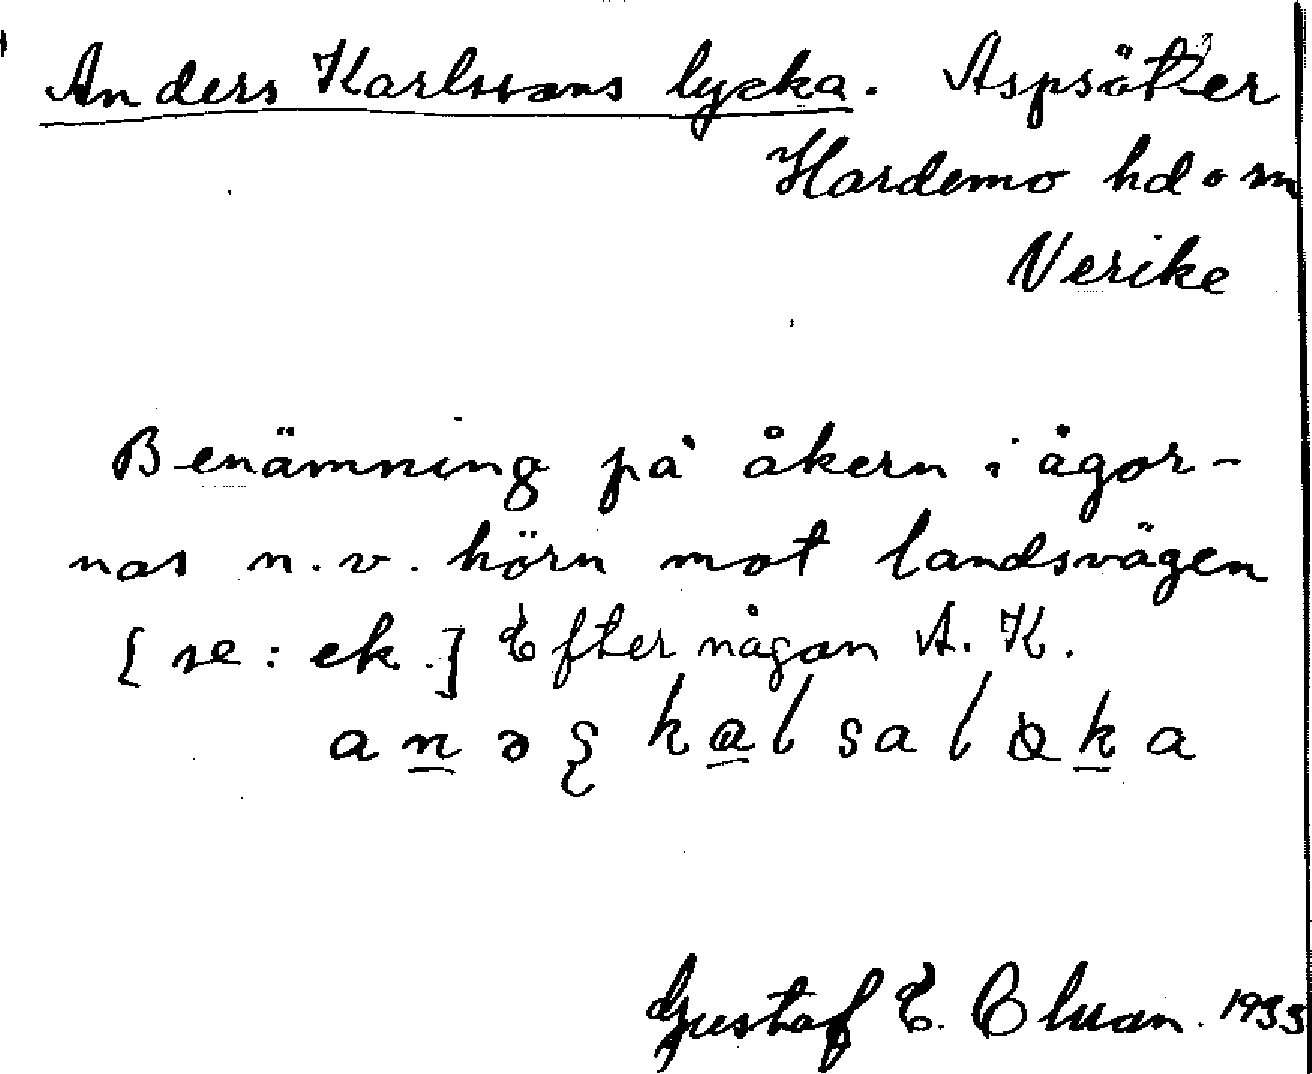 Anders Karlssons lycka. Aspsäter
Hardemo hd o sn
Nerike
Benämning på åkern i ägor-
nas n.v. hörn mot landsvägen
[se: ek.] Efter någon A. K.
Gustaf E. 1933